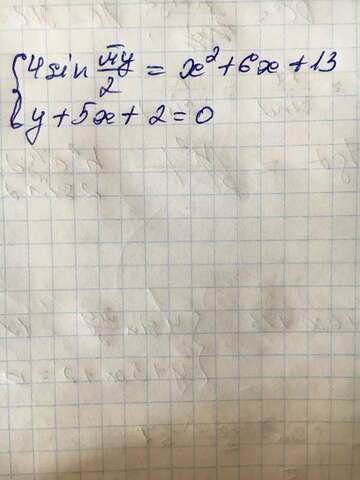 {4sin πy/2 = x² + 6x + 13
{y + 5x + 2 = 0